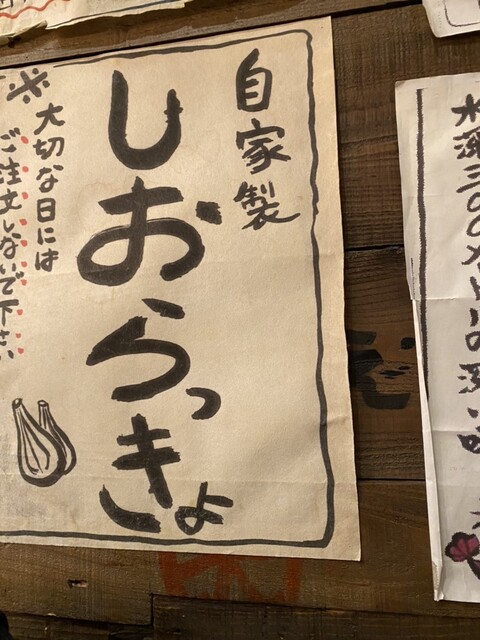 水深三〇〇メートルの深い
自家製
しおらっきょ
※大切な日には
ご注文しないで下さい